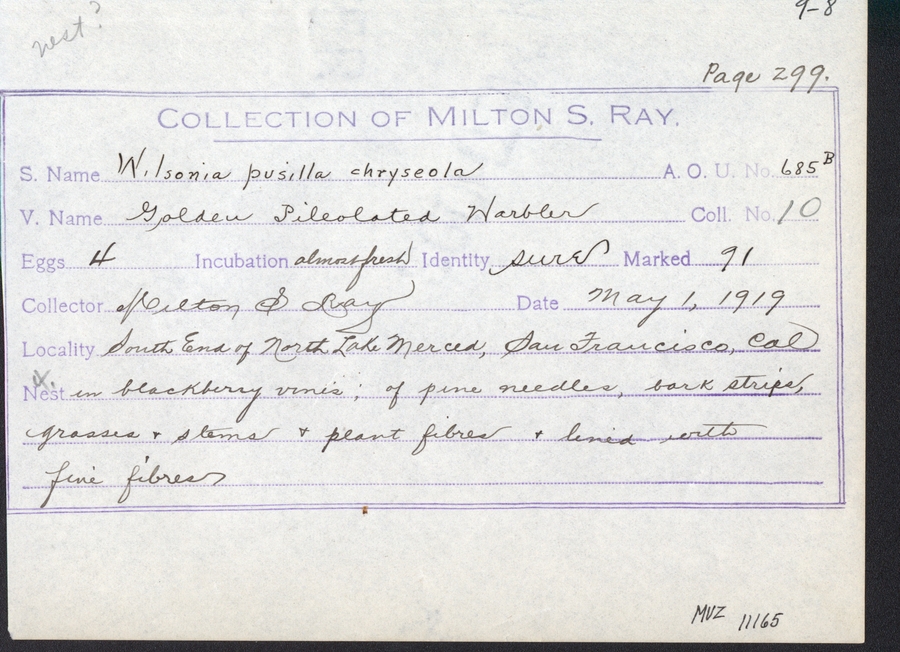 9-8
nest?
Page 299.
COLLECTION OF MILTON S. RAY.
S. Name Wilsonia pusilla chryseola A. O. U. No. 685B
V. Name Golden Pileolated Warbler Coll. No. 10
Eggs 4 Incubation almost fresh Identity sure Marked 91
Collector Milton S Ray Date May 1, 1919
Locality South End of North Lake Merced, San Francisco, Cal
Nest in blackberry vines; of pine needles, bark strips,
grasses + stems + plant fibres + lined with
fine fibres
MVZ 11165